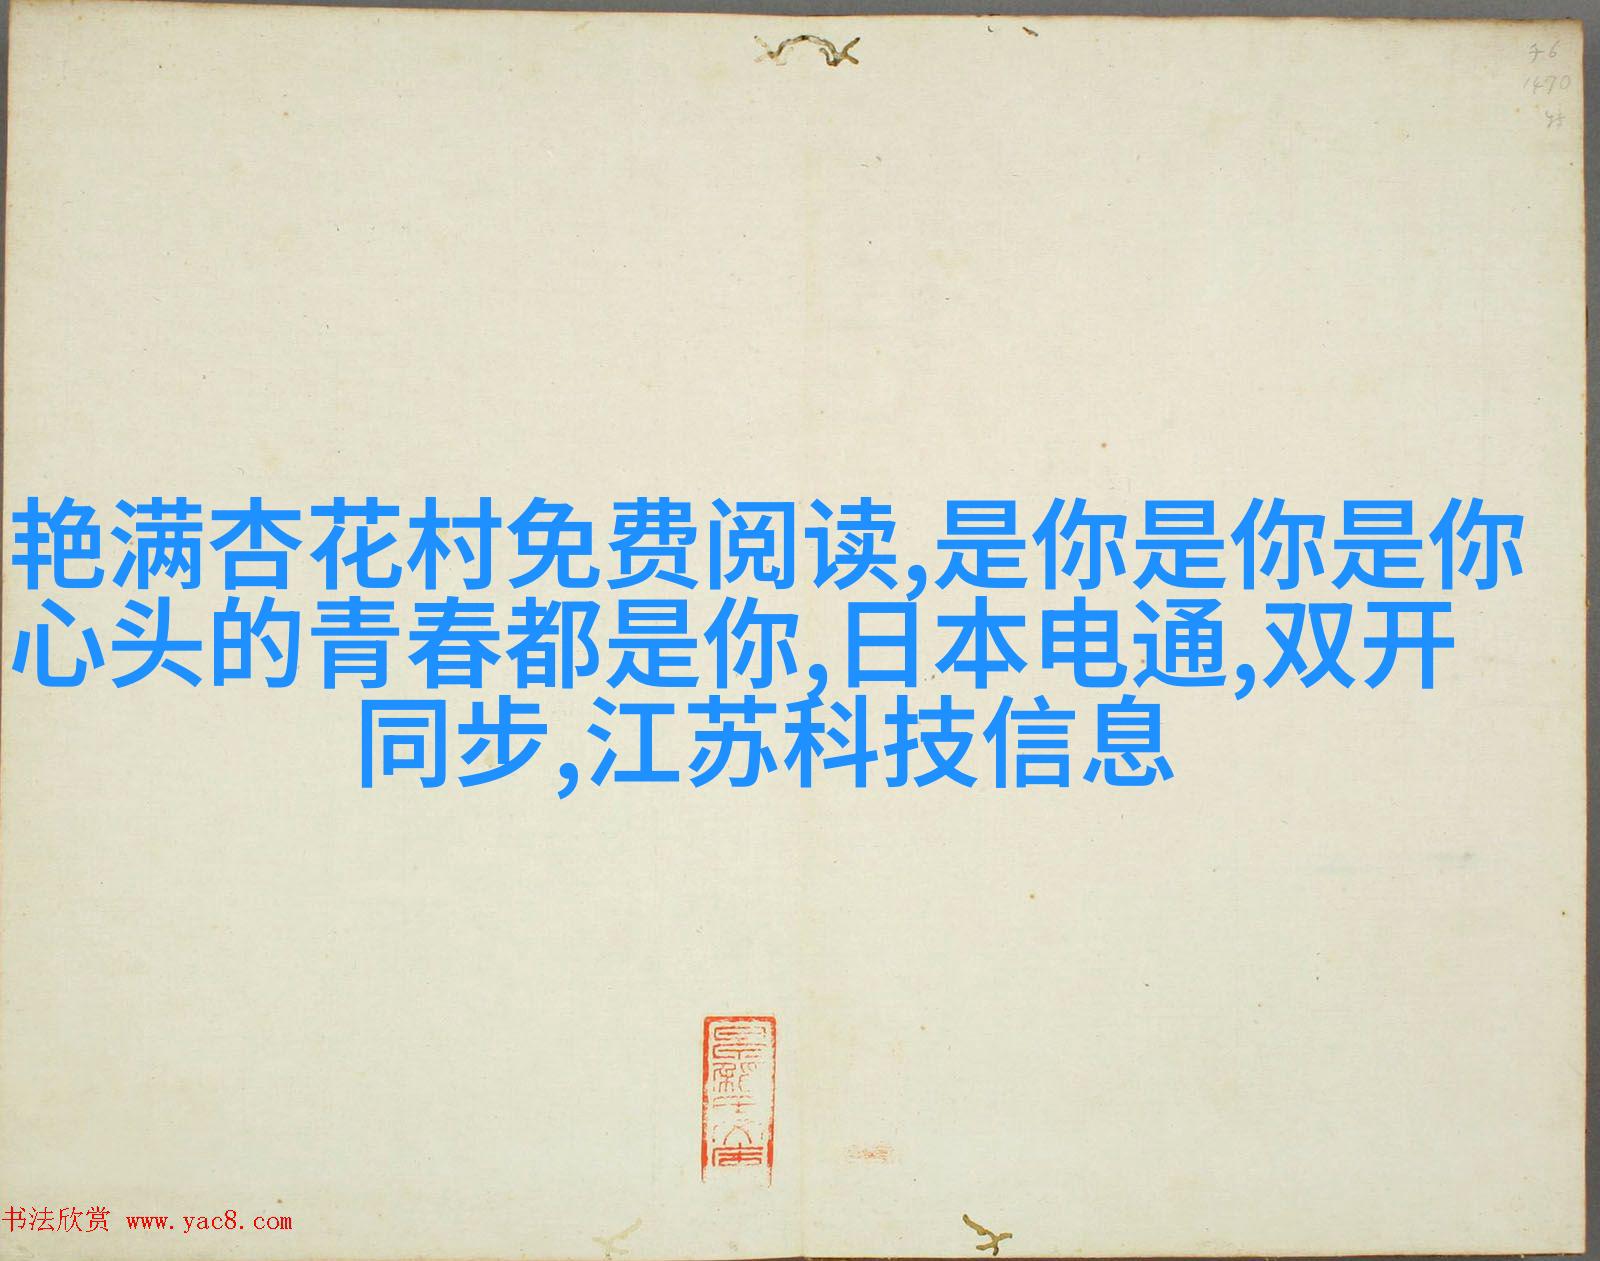 于6
1470
艳满杏花村免费阅读,是你是你是你
心头的青春都是你,日本电通,双开
同步,江苏科技信息
书法欣赏 www.yac8.com